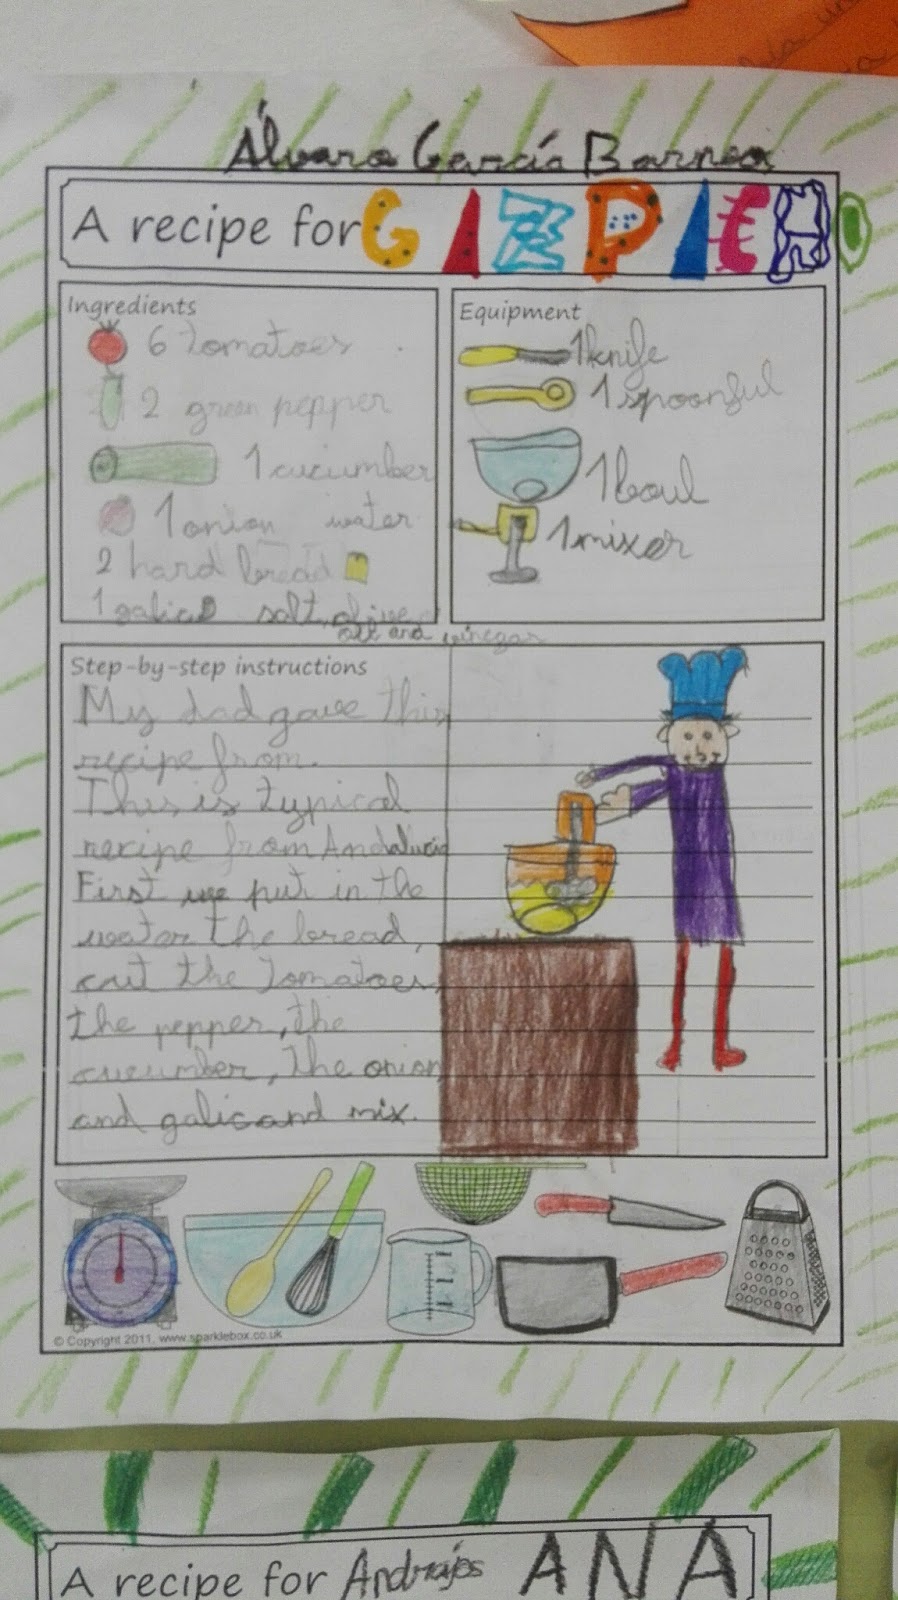 Álvaro García Barnea
A recipe for GAZPACHO
Ingredients
6 tomatoes
2 green pepper
1 cucumber
1 onion water
2 hard bread
1 galic salt, olive
oil and vinegar
Equipment
1 knife
1 spoonful
1 boul
1 mixer
Step-by-step instructions
My dad gave this
recipe from.
This is typical
recipe from Andalucia
First we put in the
water the bread,
cut the tomatoes,
the pepper, the
cucumber, the onion
and galic and mix.
© Copyright 2011, www.sparklebox.co.uk
A recipe for Andrajos ANA